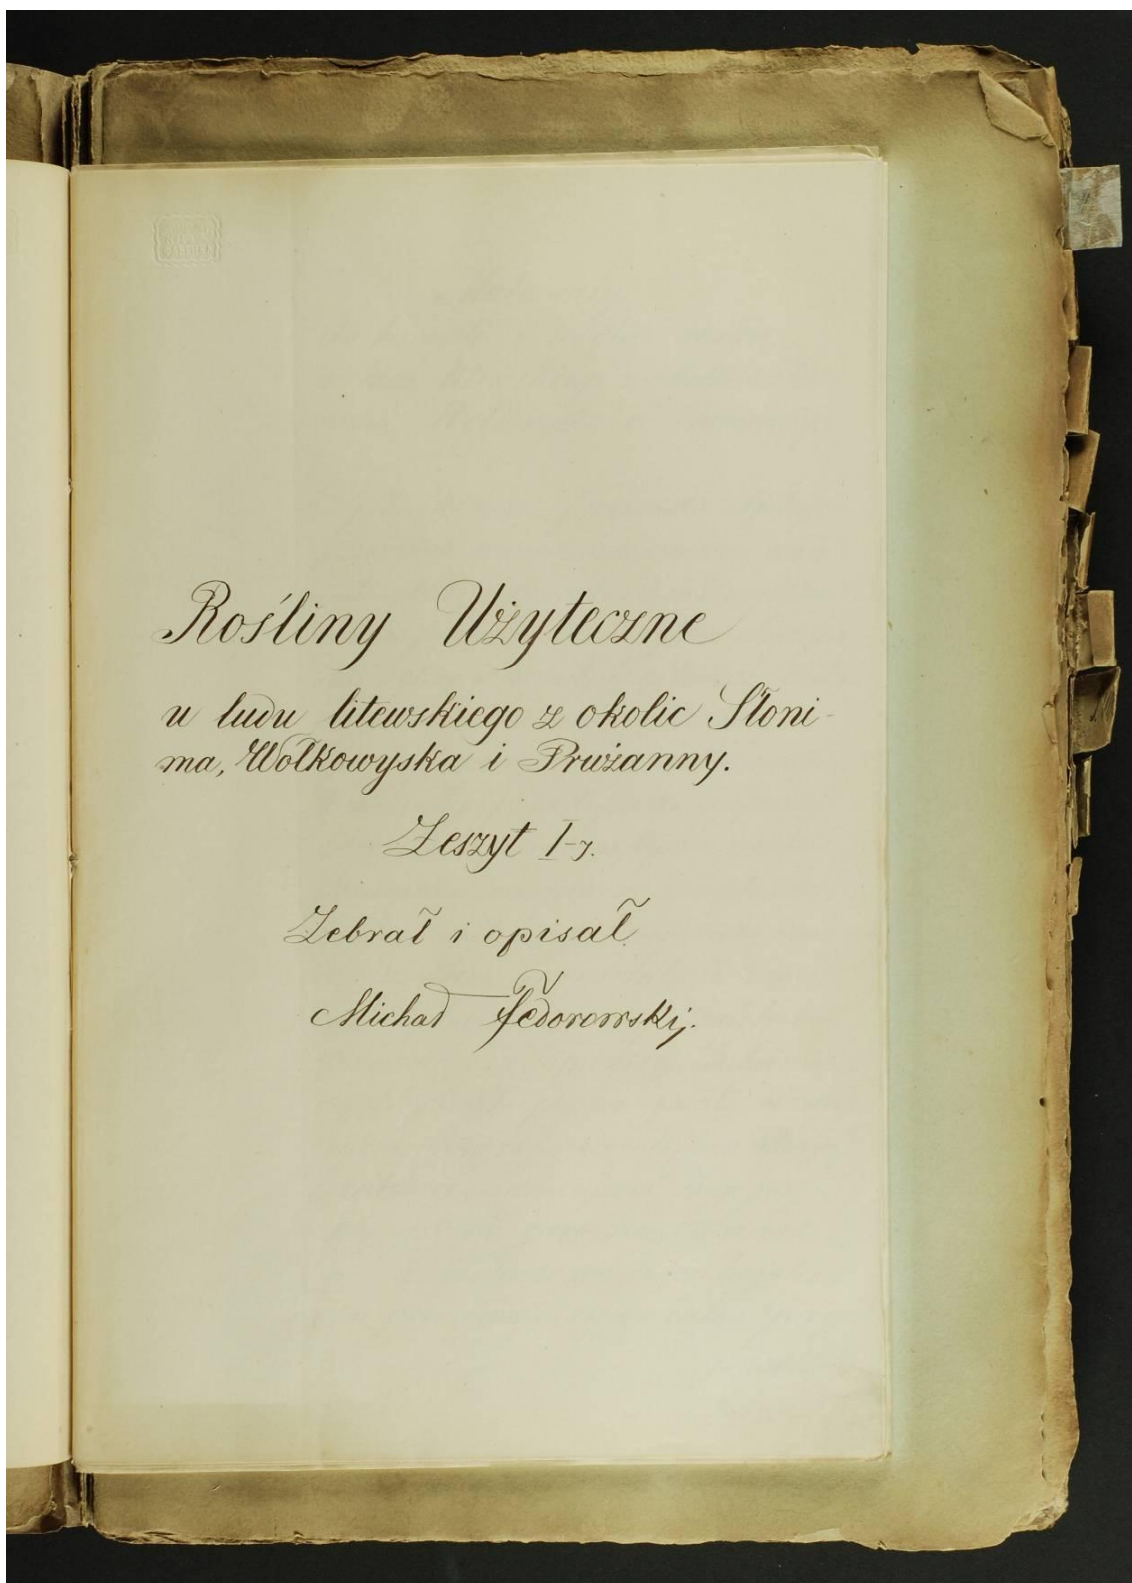 Rośliny Użyteczne
u ludu litewskiego z okolic Słoni-
ma, Wołkowyska i Prużanny.
Zeszyt I-y.
Zebrał i opisał
Michał Fedorowski.